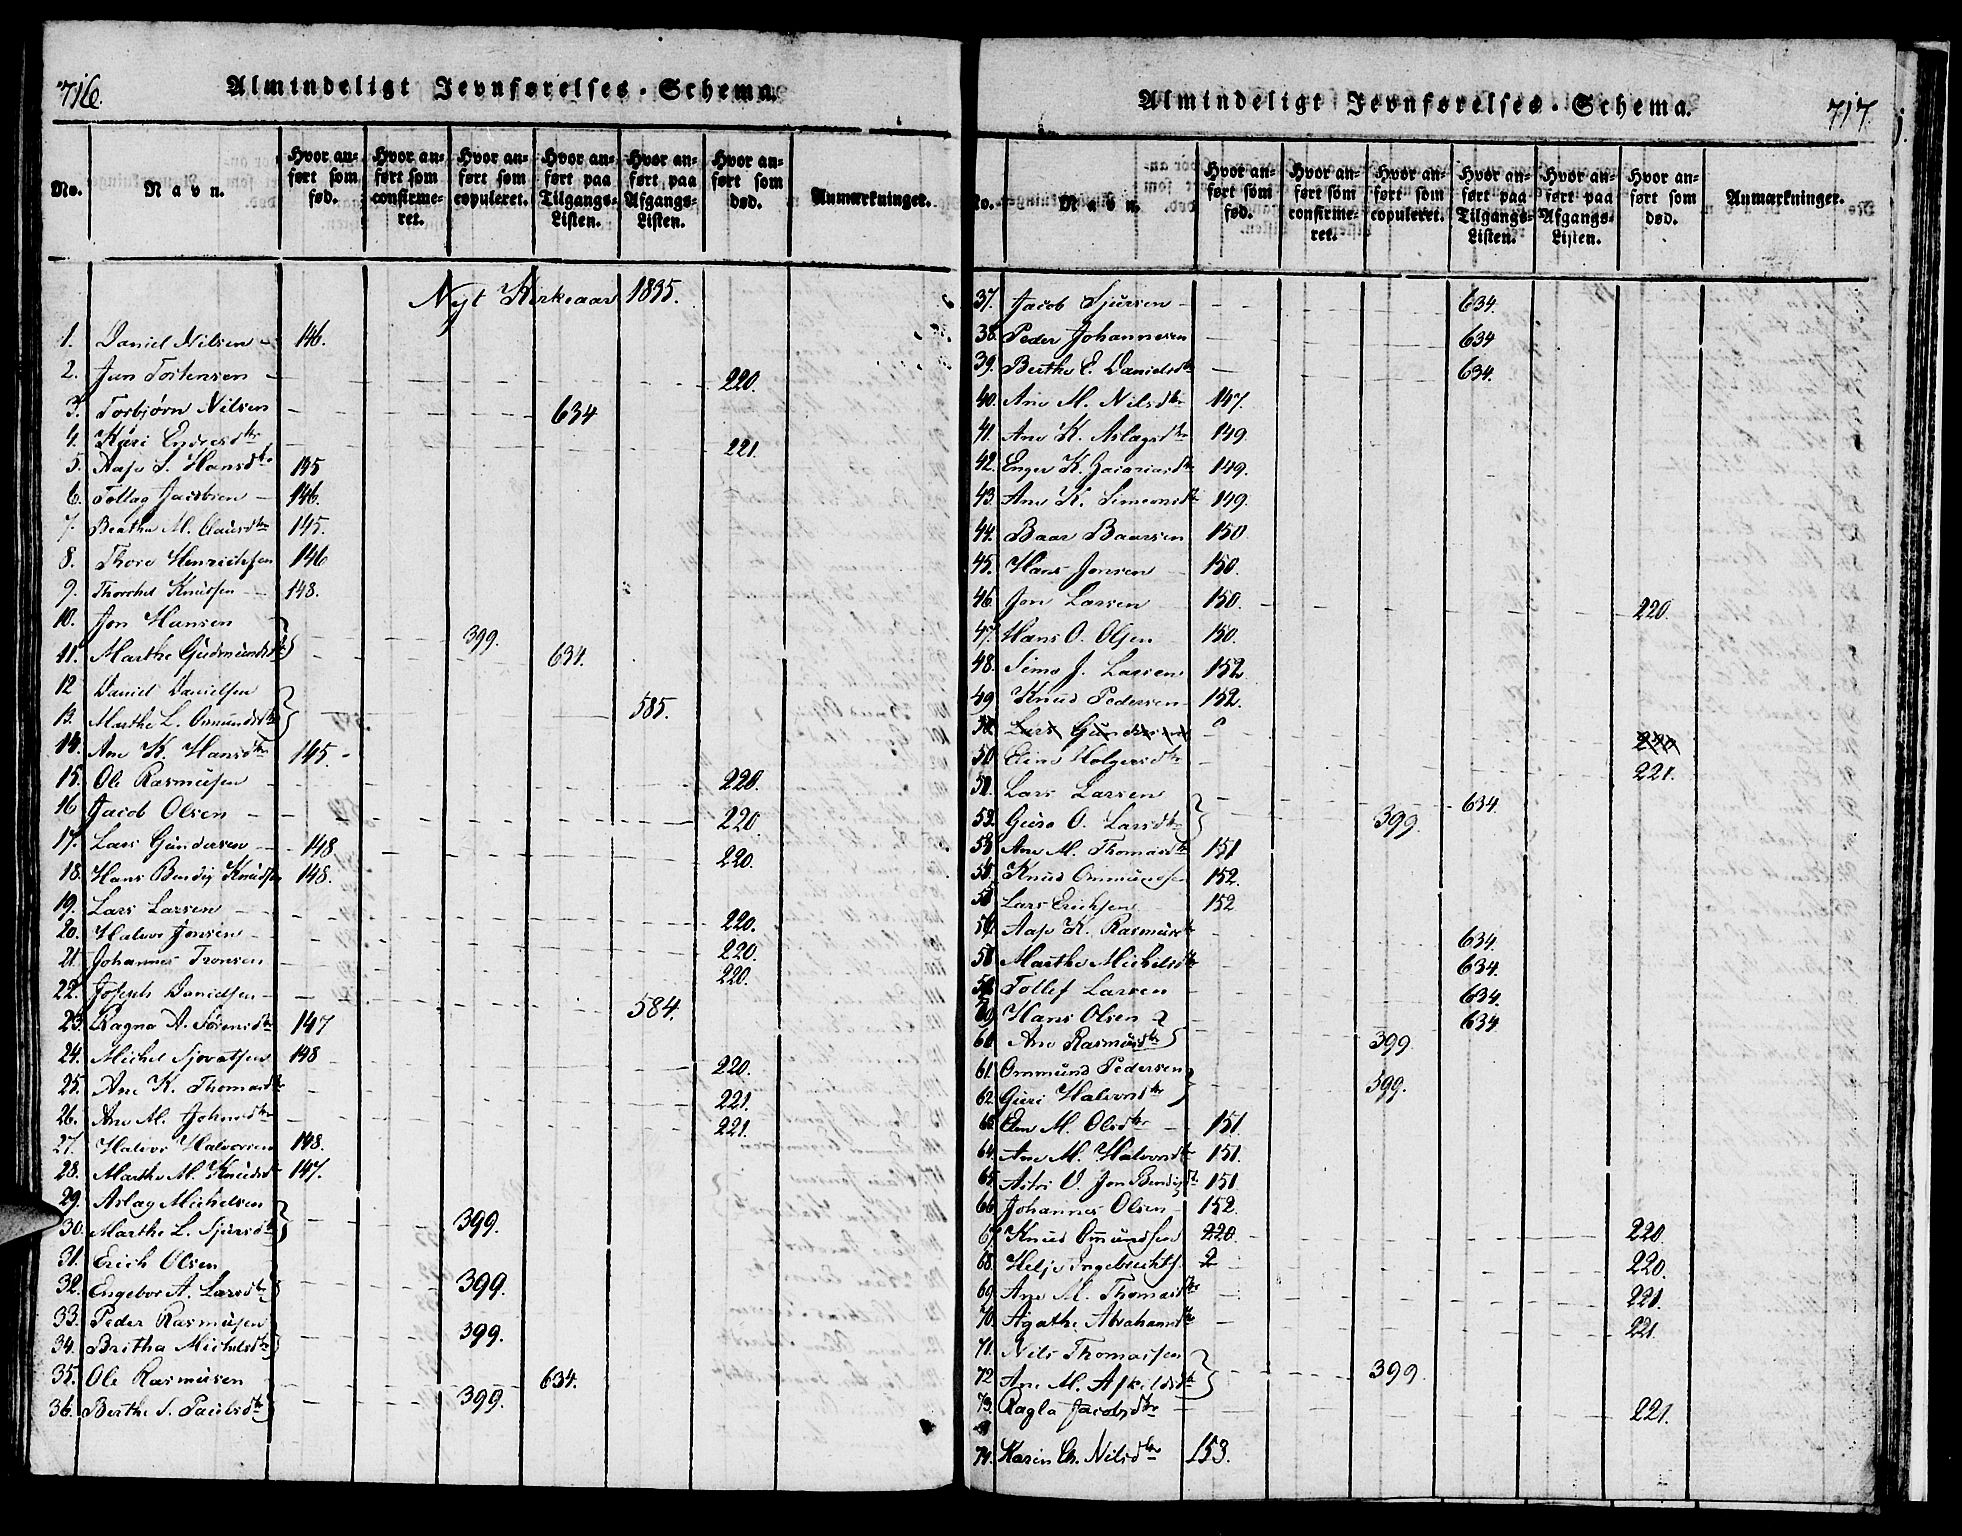 716.
Almindeligt Jevnførelses-Schema.
No.
Navn.
Hvor anført som fød.
Hvor anført som confirmeret.
Hvor anført som copuleret.
Hvor anført paa Tilgangs-Listen.
Hvor anført paa Afgangs-Listen.
Hvor anført som død.
Anmærkninger.
Nyt Kirkeaar 1835.
1. Daniel Nilsen 146.
2. Jan Tostensen 220.
3. Torbjørn Nilsen 634
4. Kari Endresdtr 221.
5. Aase S. Hansdtr 145
6. Tollag Jacobsen 146.
7. Berthe M. Clausdtr 145.
8. Thore Henrichsen 146
9. Thorchel Knudsen 148.
10. Jon Hansen 399.
11. Marthe Gudmundsdtr 634.
12 Daniel Danielsen
13. Marthe L. Omundsdtr 585.
14. Ane K. Hansdtr 145.
15. Ole Rasmusen 220.
16 Jacob Olsen 220.
17. Lars Gundersen 148 220.
18. Hans Bendig Knudsen 148.
19. Lars Larsen 220.
20. Halvor Jonsen 220.
21. Johannes Tronsen 220.
22. Joseph Danielsen 584.
23. Ragna A. Sørensdtr 147
24. Michel Sjovatsen 148 220.
25. Ane K. Thomasdtr 221.
26. Ane M. Johnsdtr 221.
27. Halvor Halvorsen 148.
28. Marthe M. Knudsd 147.
29. Aslag Michelsen
30. Marthe L. Sjursdtr 399.
31. Erich Olsen
32. Engebor A. Larsdtr 399.
33. Peder Rasmusen
34. Britha Michelsdtr 399.
35. Ole Rasmusen 634.
36. Berthe S. Paulsdtr 399.
Almindeligt Jevnførelses-Schema.
717.
No.
Navn.
Hvor anført som fød.
Hvor anført som confirmeret.
Hvor anført som copuleret.
Hvor anført paa Tilgangs-Listen.
Hvor anført paa Afgangs-Listen.
Hvor anført som død.
Anmærkninger.
37. Jacob Sjursen 634.
38. Peder Johannesen 634
39. Berthe E. Danielsdtr 634.
40. Ane M. Nilsdtr 147.
41. Ane K. Aslagsdtr 149.
42. Enger K. Zacariasdtr 149.
43. Ane K. Simeonsdtr 149.
44. Baar Baarsen 150.
45. Hans Jonsen 150.
46. Jon Larsen 150. 220.
47. Hans O. Olsen 150.
48. Simo J. Larsen 152.
49 Knud Pedersen 152.
Lars Gundersen 220
50 Holgersdtr 221.
51. Lars Larsen 634
52. Guro O. Larsdtr 399.
53 Ane M. Thomasdtr 151
54. Knud Ommundsen 152.
55 Lars Erichsen 152
Aase K. Rasmusdtr 634.
58 Marthe Michelsdtr 634.
59 Tollef Larsen 634.
Hans Olsen 634
60 Ane Rasmusdtr 399.
61. Ommund Pedersen 399.
62. Guri Halvorsdtr
63. Elen M. Olsdtr 151.
64. Ane M. Halvorsdtr 151.
65. O. Jon Bendigsdtr 151.
66. Johannes Olsen 152.
67. Knud Omundsen 220. 220.
68. Helje Ingebrechts. 2 220.
69. Ane M. Thomasdtr 221.
70. Agathe Abrahamsdtr 221.
71. Nils Thomassen
72 Ane M. Askildsdtr 399.
73. Ragla Jacobsdtr 221.
74. Karin Ch. Nilsdtr 153.